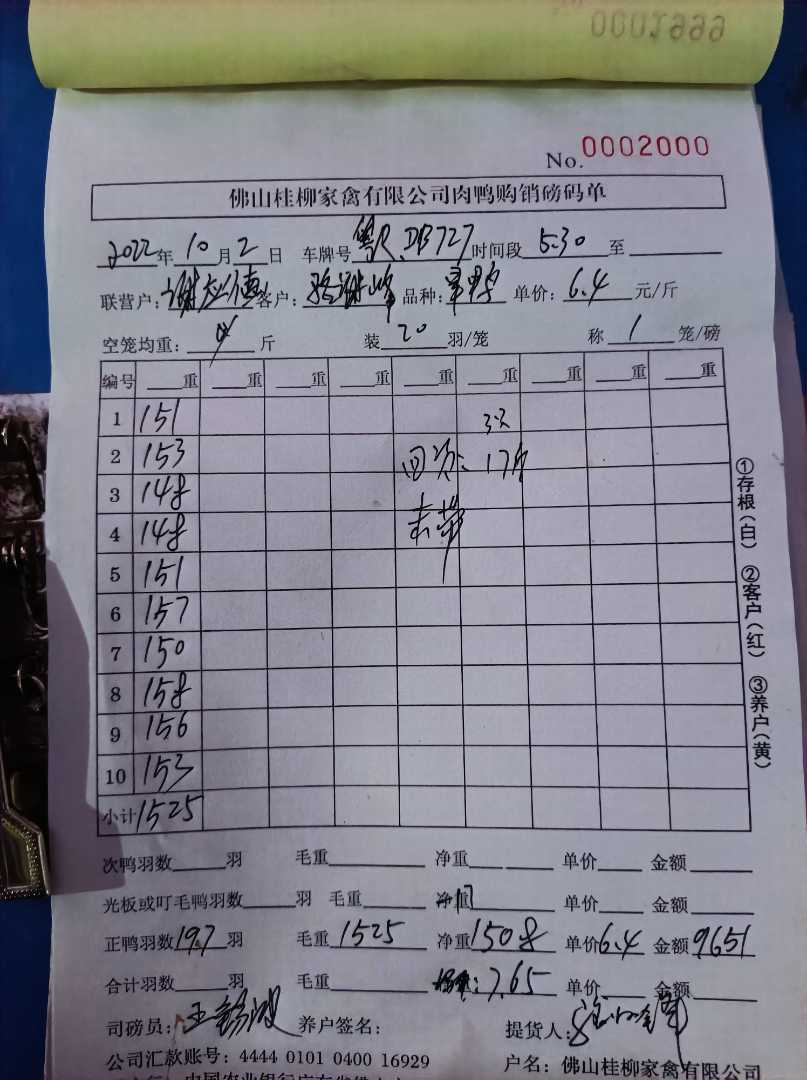 0001999
No. 0002000
佛山桂柳家禽有限公司肉鸭购销磅码单
2022年 10月 2日 车牌号 粤R.DB727 时间段 5:30 至
联营户: 客户: 品种: 单价: 6.4 元/斤
空笼均重: 斤 装 20 羽/笼 称 1 笼/磅
编号 重 重 重 重 重 重 重 重 重
1 151
2 153 回资: 17斤
3 148
4 148
5 151
6 157
7 150
8 158
9 156
10 153
小计 1525
①存根(白) ②客户(红) ③养户(黄)
次鸭羽数 羽 毛重 净重 单价 金额
光板或叮毛鸭羽数 羽 毛重 净重 17 单价 金额
正鸭羽数 197 羽 毛重 1525 净重 1508 单价 6.4 金额 9651
合计羽数 羽 毛重 : 7.65 单价 金额
司磅员: 养户签名: 提货人:
公司汇款账号: 4444 0101 0400 16929 户名: 佛山桂柳家禽有限公司